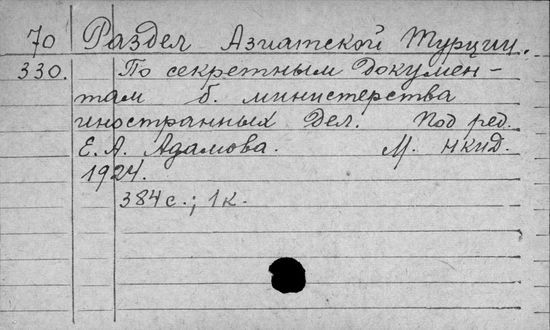 70 Раздел Азиатской Турции.
330. По секретным докумен-
там б. министерства
иностранных дел. Под ред.
Е. А. Адамова. М. НКИД.
1924.
384 с.; 1 к.